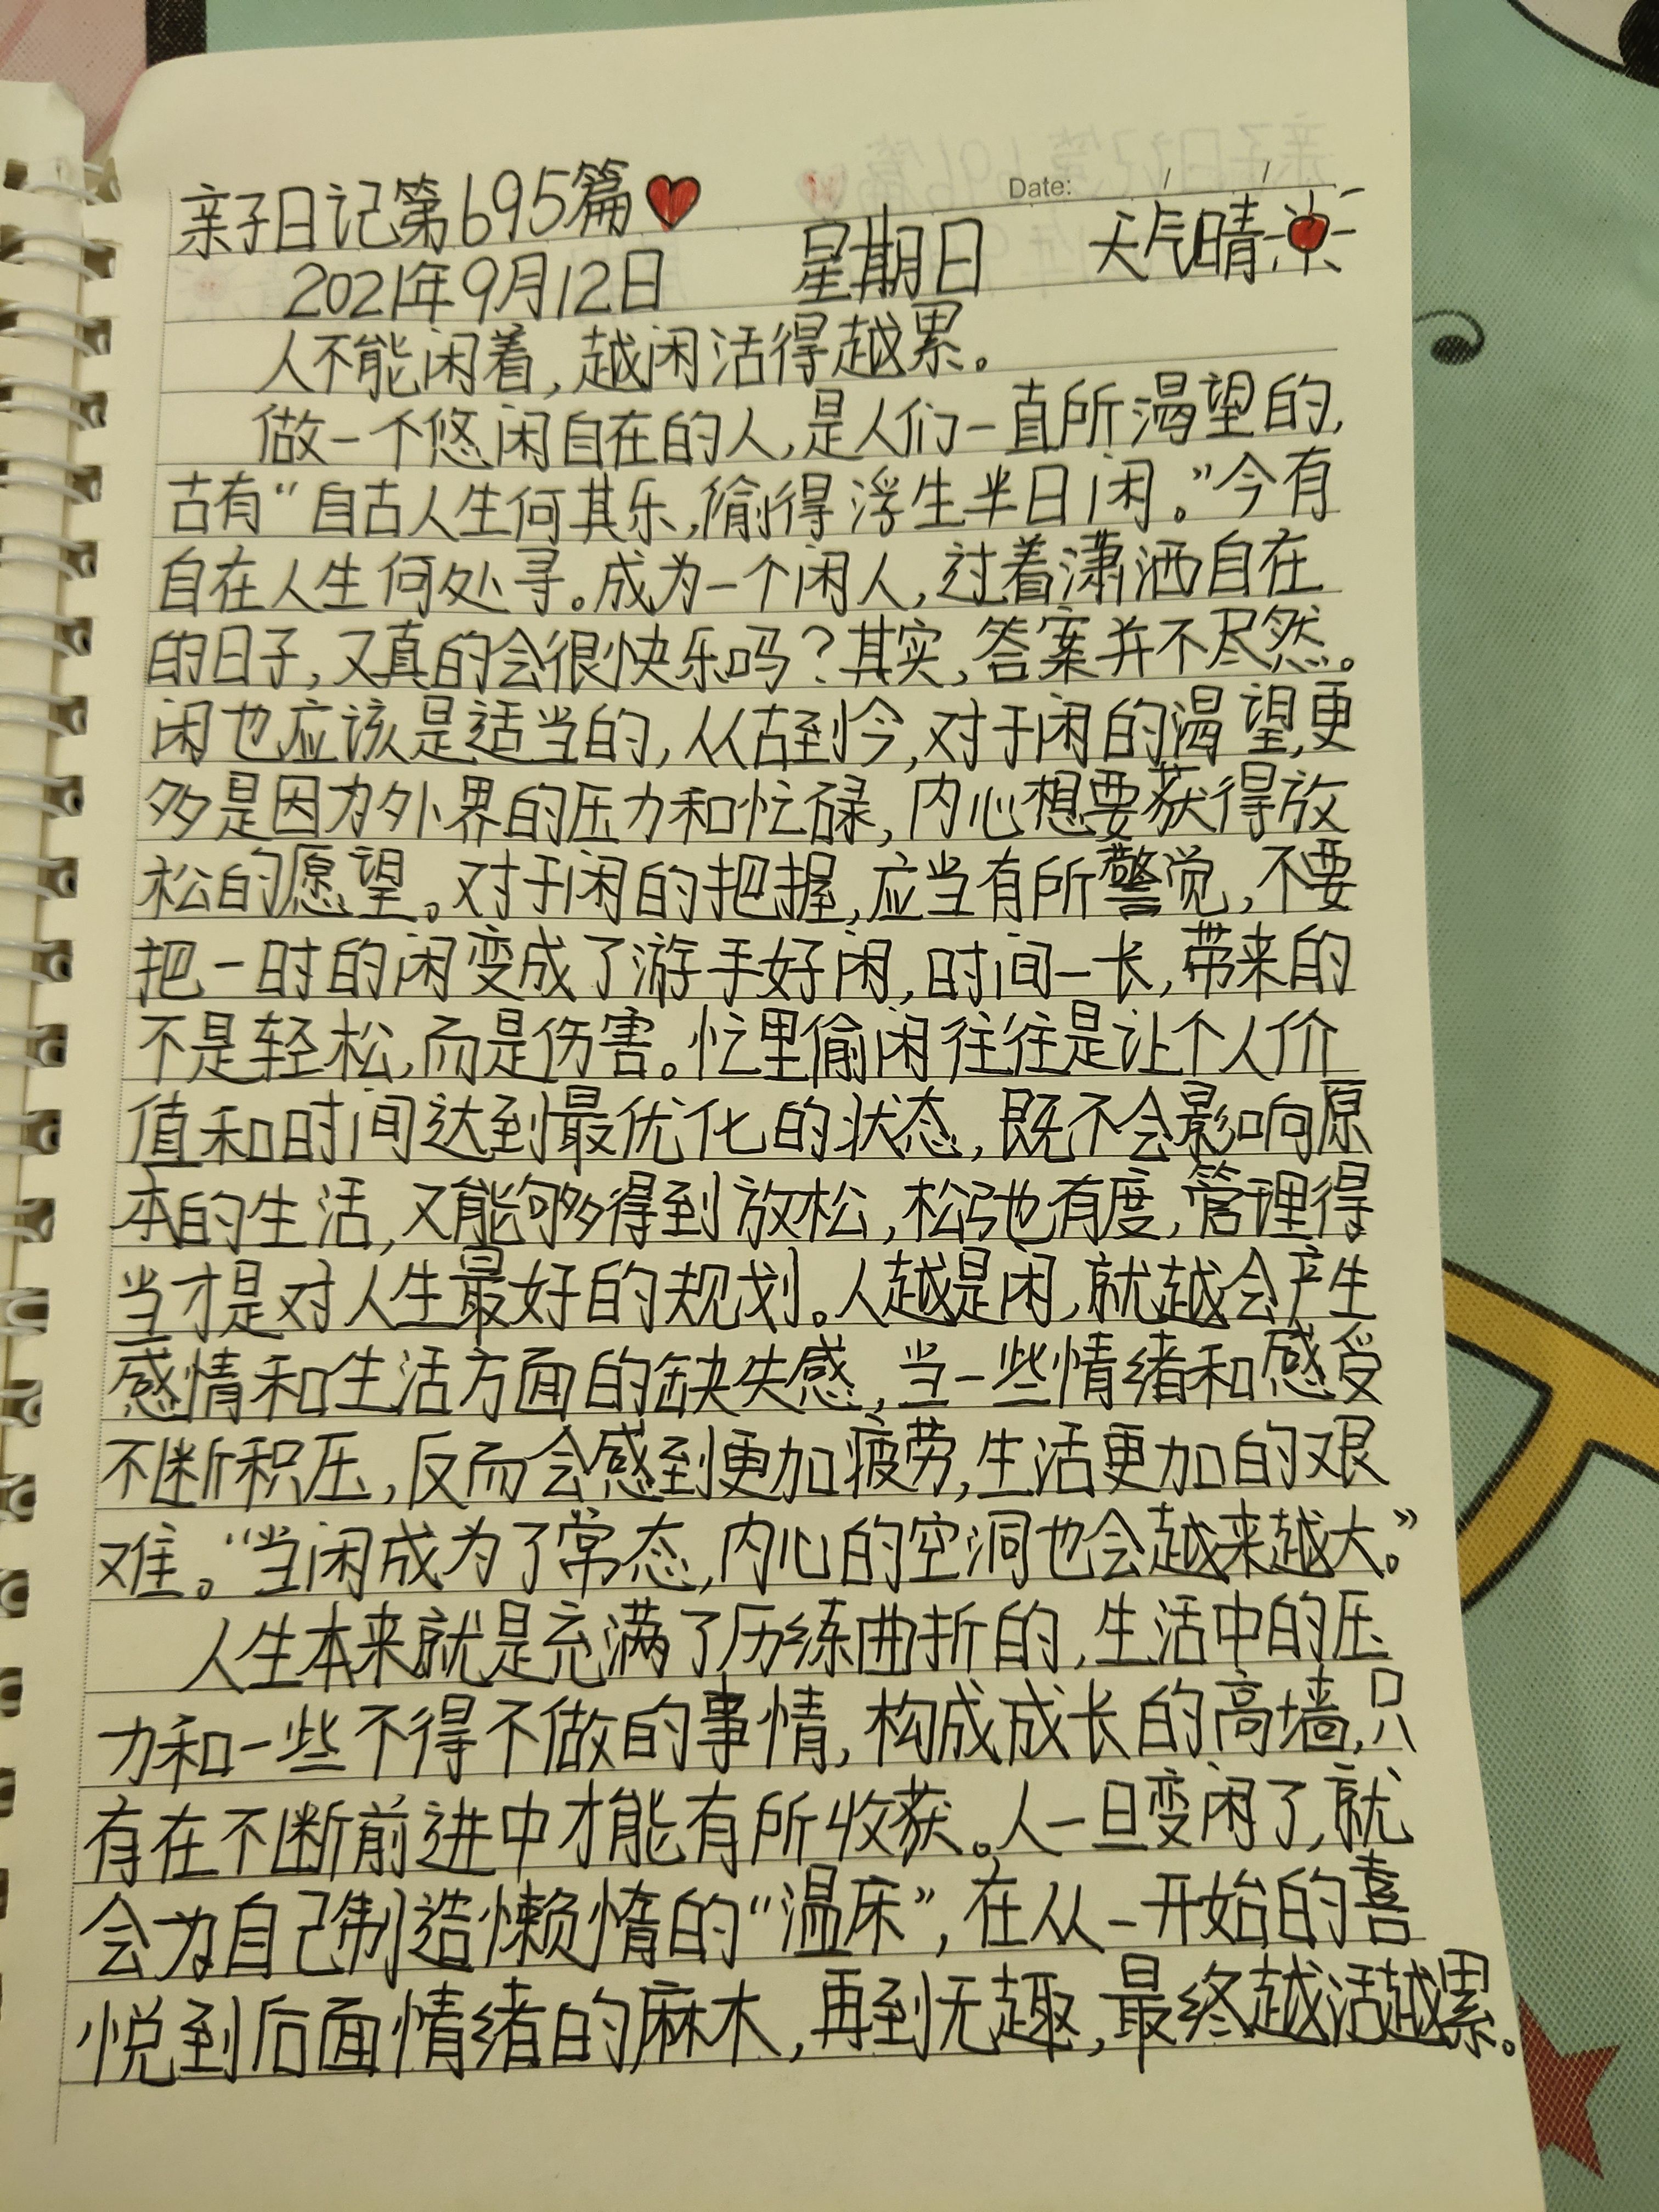 亲子日记第695篇
Date: / /
2021年9月12日 星期日 天气晴
人不能闲着,越闲活得越累。
做一个悠闲自在的人,是人们一直所渴望的,
古有“自古人生何其乐,偷得浮生半日闲。”今有
自在人生何处寻。成为一个闲人,过着潇洒自在
的日子,又真的会很快乐吗?其实,答案并不尽然。
闲也应该是适当的,从古到今,对于闲的渴望,更
多是因为外界的压力和忙碌,内心想要获得放
松的愿望。对于闲的把握,应当有所警觉,不要
把一时的闲变成了游手好闲,时间一长,带来的
不是轻松,而是伤害。忙里偷闲往往是让个人价
值和时间达到最优化的状态,既不会影响原
本的生活,又能够得到放松,松弛有度,管理得
当才是对人生最好的规划。人越是闲,就越会产生
感情和生活方面的缺失感,当一些情绪和感受
不断积压,反而会感到更加疲劳,生活更加的艰
难。“当闲成为了常态,内心的空洞也会越来越大。”
人生本来就是充满了历练曲折的,生活中的压
力和一些不得不做的事情,构成成长的高墙,只
有在不断前进中才能有所收获。人一旦变闲了,就
会为自己制造懒惰的“温床”,在从一开始的喜
悦到后面情绪的麻木,再到无趣,最终越活越累。